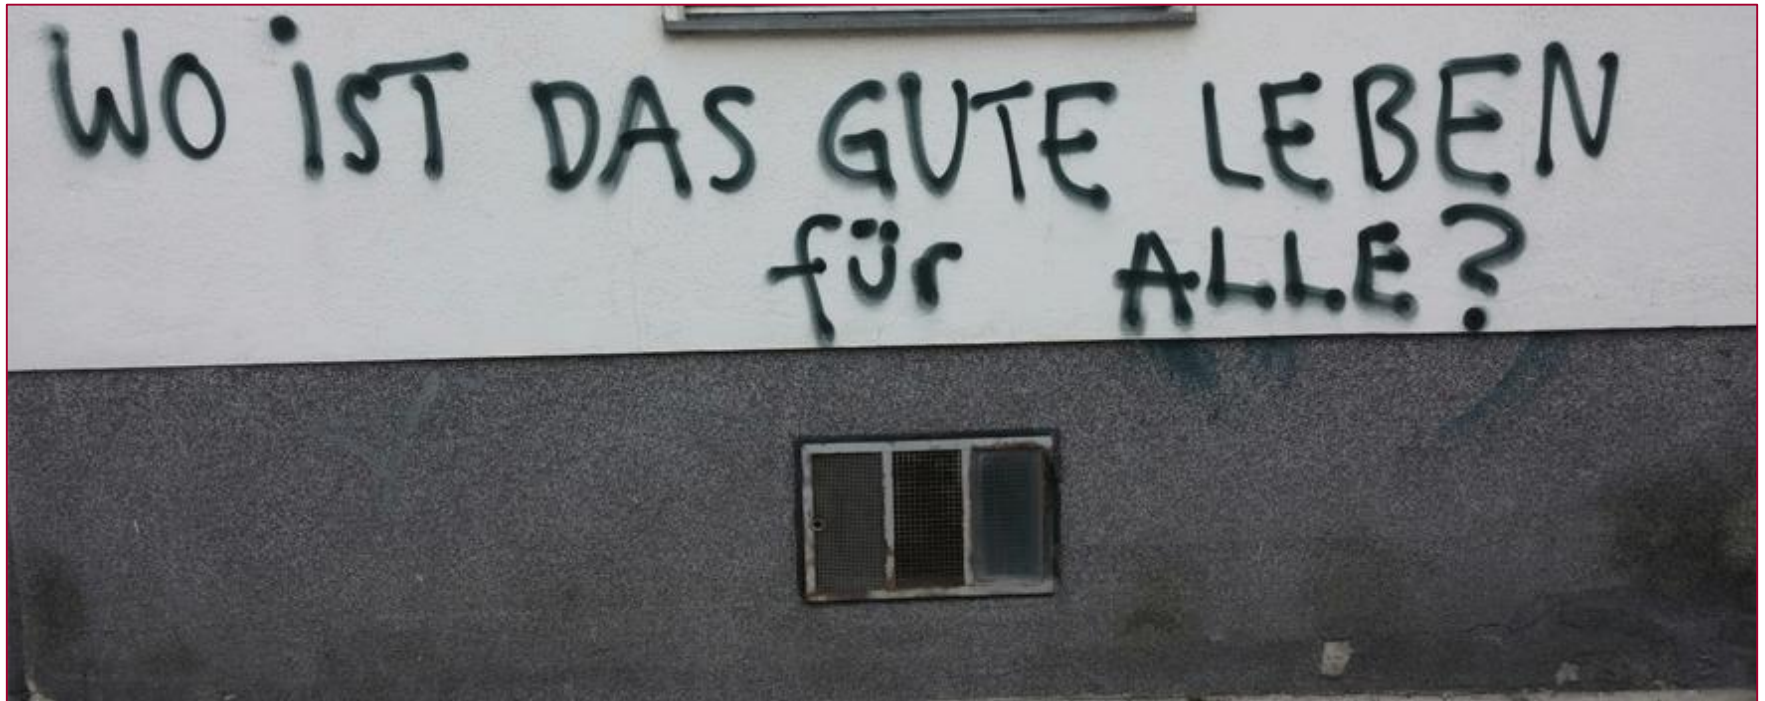 WO iST DAS GUTE LEBEN
für ALLE?